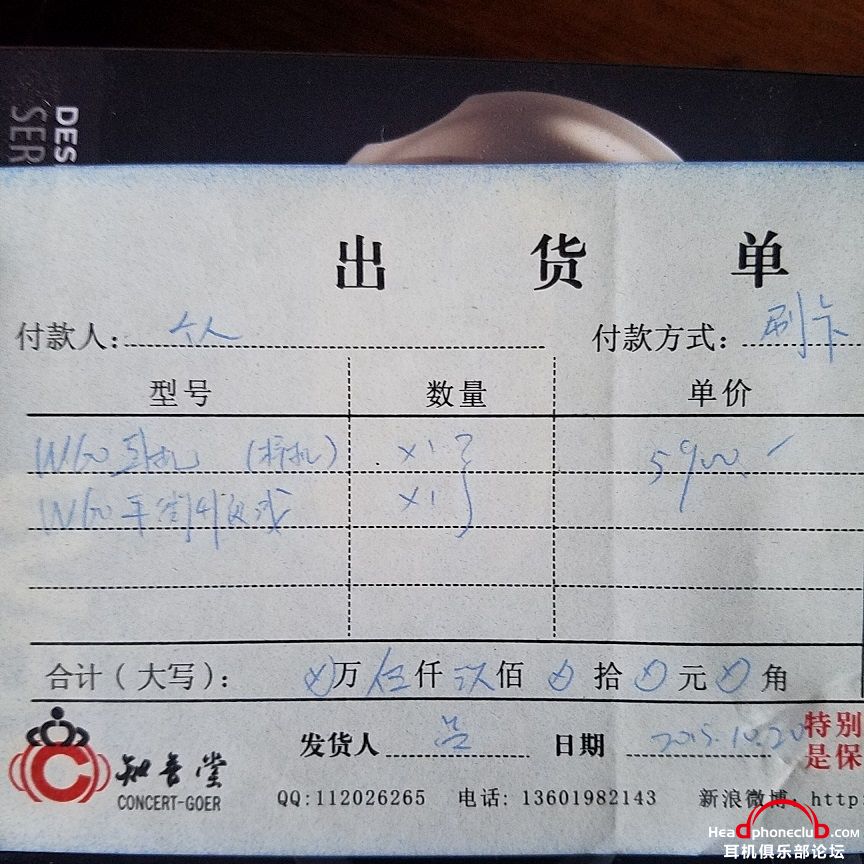 DES
SER
出 货 单
付款人: 个人 付款方式: 刷卡
型号 数量 单价
W60耳机 (样机) ×1 5900.
W60平衡 ×1
合计(大写): 万 伍 仟 佰 拾 元 角
发货人 日期 2015.10.20 特别
是保
知音堂
CONCERT-GOER
QQ:112026265 电话: 13601982143 新浪微博: http:
Headphoneclub.com
耳机俱乐部论坛